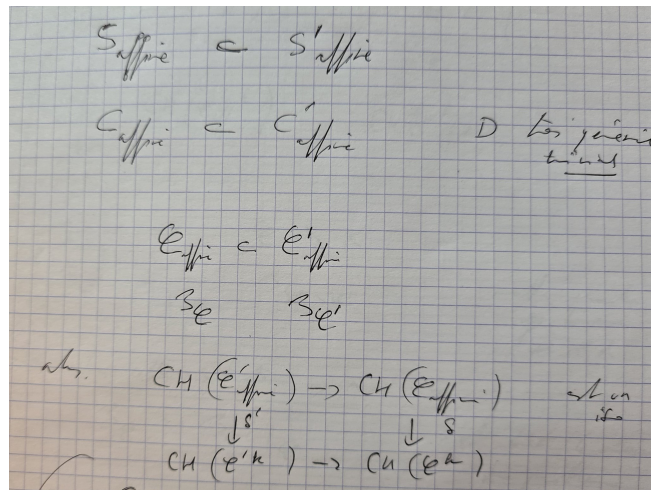 S_affine ⊂ S'_affine
C_affine ⊂ C'_affine D très
𝒞_affine ⊂ 𝒞'_affine
3_𝒞 3_𝒞'
alors CH(𝒞'_affine) → CH(𝒞_affine) est un iso
↓ δ' ↓ δ
CH(𝒞'^h) → CH(𝒞^h)